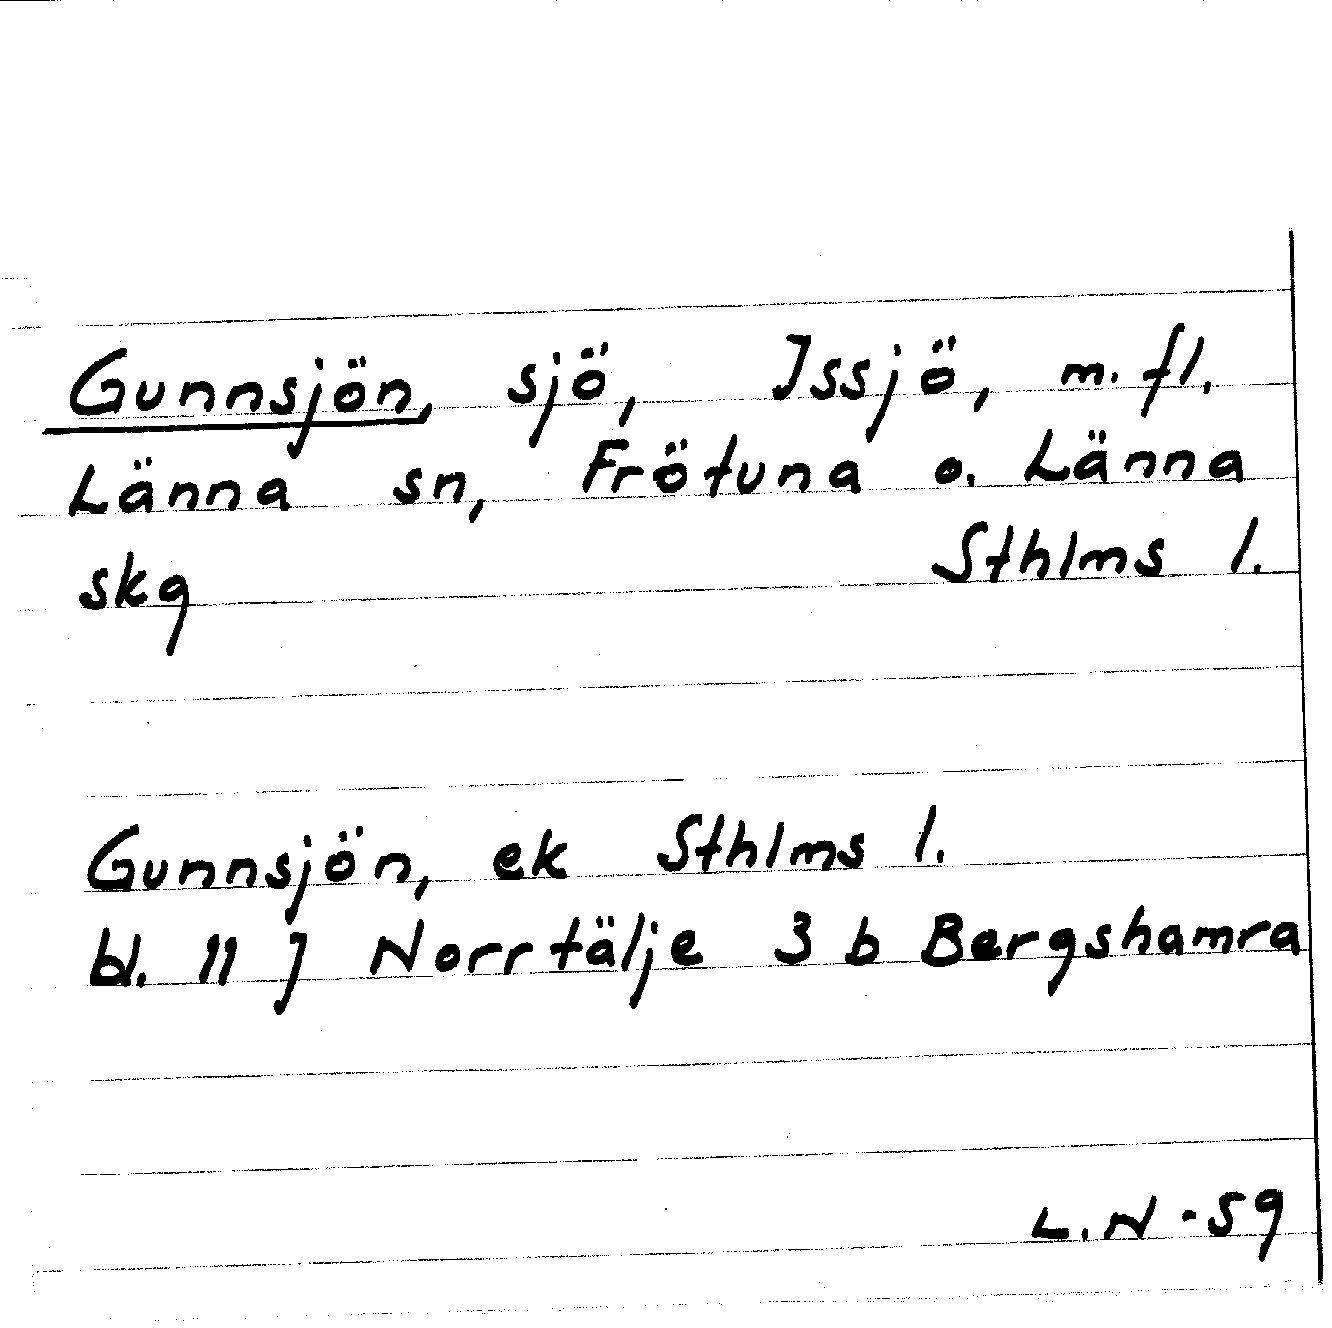 Gunnsjön, sjö, Issjö, m. fl.
Länna sn, Frötuna o. Länna
skg Sthlms l.
Gunnsjön, ek Sthlms l.
bl. 11 J Norrtälje 3 b Bergshamra
L. N - 59